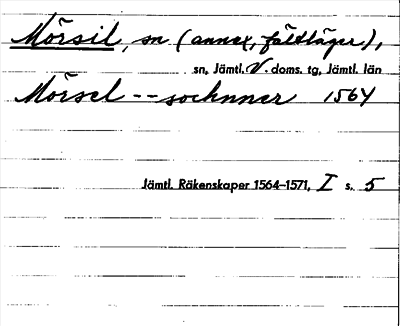 Mörsil, sn (annex, fältläger),
sn, Jämtl. V. doms. tg, Jämtl. län
Mörsel -- socknner 1564
Jämtl. Räkenskaper 1564–1571, I s. 5